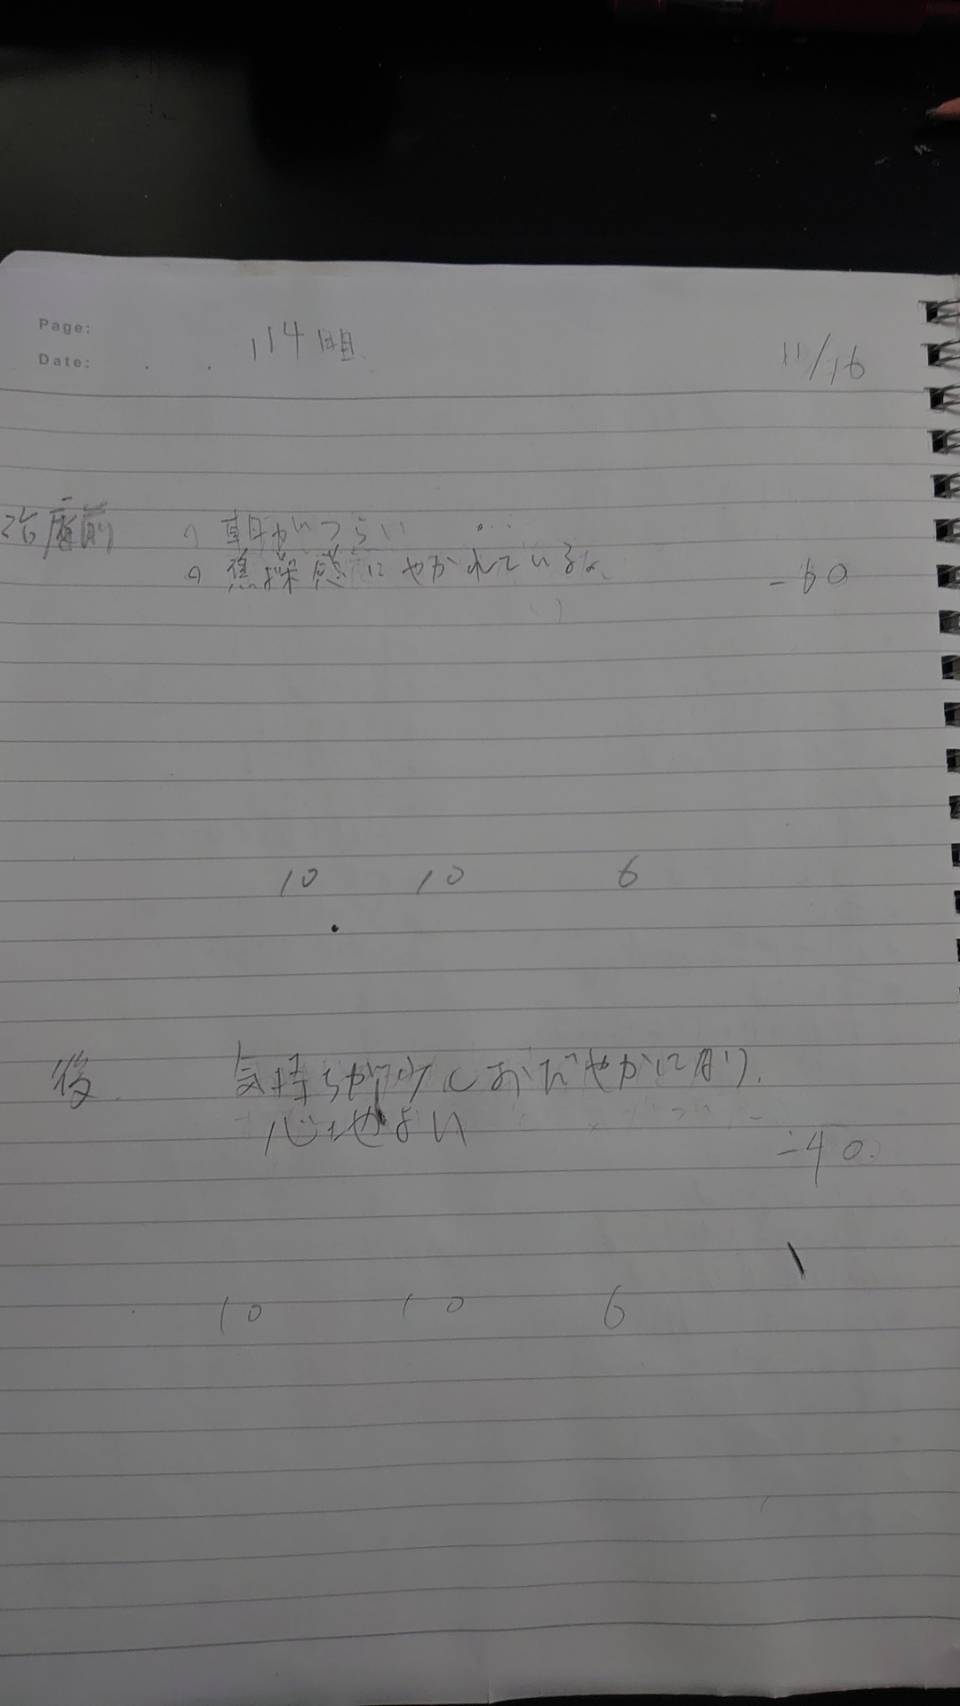 Page:
Date:
114日目
11/16
治療前
朝がつらい
焦燥感にやかれている
-60
10 10 6
後
気持ちが少しおだやかになり
心地よい
-40
10 10 6